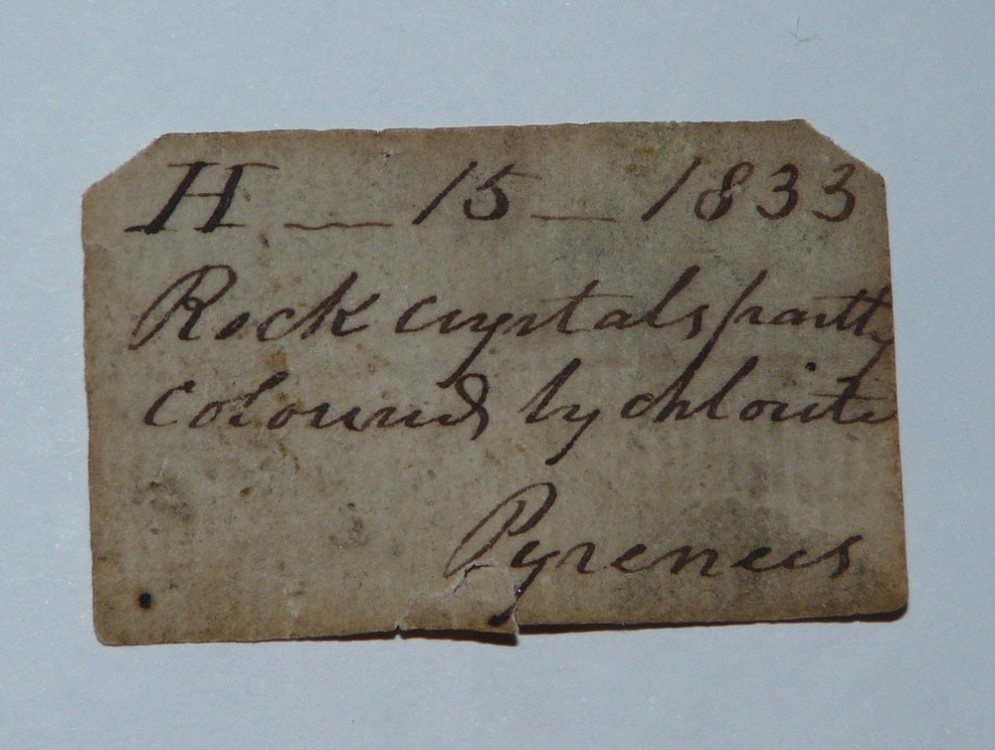 H — 15 — 1833
Rock crystals partly
coloured by chlorite
Pyrenees